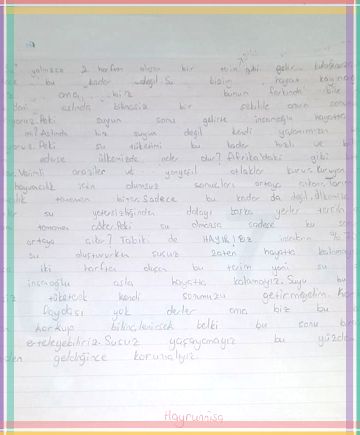 yalnızca 2 harften oluşan bir terim gibi gelir
bu kadar değil. Su bizim hayat kaynağı
ama biz bunun farkında bile
aslında bilinçsiz bir şekilde onun sonunu
Peki suyun sonu gelirse insanoğlu hayatta
mı? Aslında biz suyun değil kendi yaşamımızın
Peki su tüketimi bu kadar hızlı ve
ederse ülkemizde neler olur? Afrika'daki gibi
Verimli araziler ve yemyeşil otlaklar kurur. Kuruyan
hayvancılık için olumsuz sonuçları ortaya çıkar. Tarım
tamamen biter. Sadece bu kadar da değil, ülkemize
su yetersizliğinden dolayı başka yerler
tamamen göçer. Peki su olmazsa sadece bu
ortaya çıkar? Tabiki de HAYIR! Biz insanların %
su oluştururken susuz zaten hayatta kalamayız
iki harften oluşan bu terim yani su
insanoğlu asla hayatta kalamayız. Suyu bu
tüketerek kendi sonumuzu getirmeyelim.
faydası yok derler ama biz bu
korkup bilinçlenirsek belki bu sonu
erteleyebiliriz. Susuz yaşayamayız bu yüzden
geldiğince korumalıyız.
Hayrunnisa